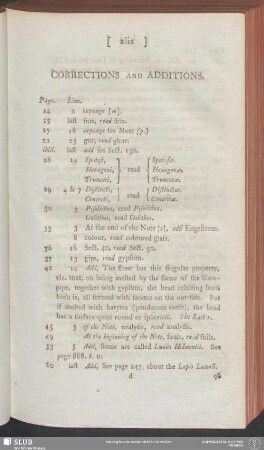 [ xlix ]
CORRECTIONS AND ADDITIONS.
Page. Line.
14 2 expunge [m].
15 last fine, read fine.
17 18 expunge for Note (p.)
21 23 gur, read ghur.
ibid. last add fee Sect. 130.
28 14 Spatosi, Hexagoni, Truncati, } read { Spatosæ. Hexagonæ. Truncatæ.
29 4 & 7 Distincti, Concreti, } read { Distinctæ. Concretæ.
30 3 Pisolithus, read Pisolithes.
Oolithus, read Oolithes.
33 3 At the end of the Note [s], add Engestrom.
8 colour, read coloured glass.
36 16 Sect. 40, read Sect. 50.
37 13 gips, read gypsum.
42 14 Add, The fluor has this singular property,
viz. that, on being melted by the flame of the blow-
pipe, together with gypsum, the bead resulting from
both is, all formed with facetes on the out-side. But
if melted with barytes (ponderous earth), the bead
has a surface quite round or spherical. The Editor.
45 3 Of the Note, enalysis, read analysis.
49 At the beginning of the Note, fouls, read foils.
53 5 Add, Some are called Ludus Helmontii. See
page 888. b. n.
60 last Add, See page 247, about the Lapis Lumach.
d
96
SLUB